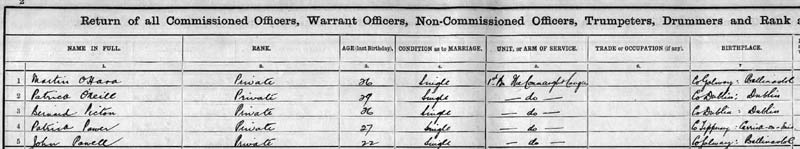 Return of all Commissioned Officers, Warrant Officers, Non-Commissioned Officers, Trumpeters, Drummers and Rank
NAME IN FULL. RANK. AGE (last Birthday). CONDITION as to MARRIAGE. UNIT, OR ARM OF SERVICE. TRADE OR OCCUPATION (if any). BIRTHPLACE.
1. 2. 3. 4. 5. 6. 7.
1 Martin O'Hara Private 36 Single 1st Bn The Connaught Co Galway: Ballinasloe
2 Patrick O'Neill Private 29 Single — do — Co Dublin: Dublin
3 Bernard Picton Private 36 Single — do — Co Dublin: Dublin
4 Patrick Power Private 27 Single — do — Co Tipperary: Carrick-on-Suir
5 John Powell Private 22 Single — do — Co Galway: Ballinasloe